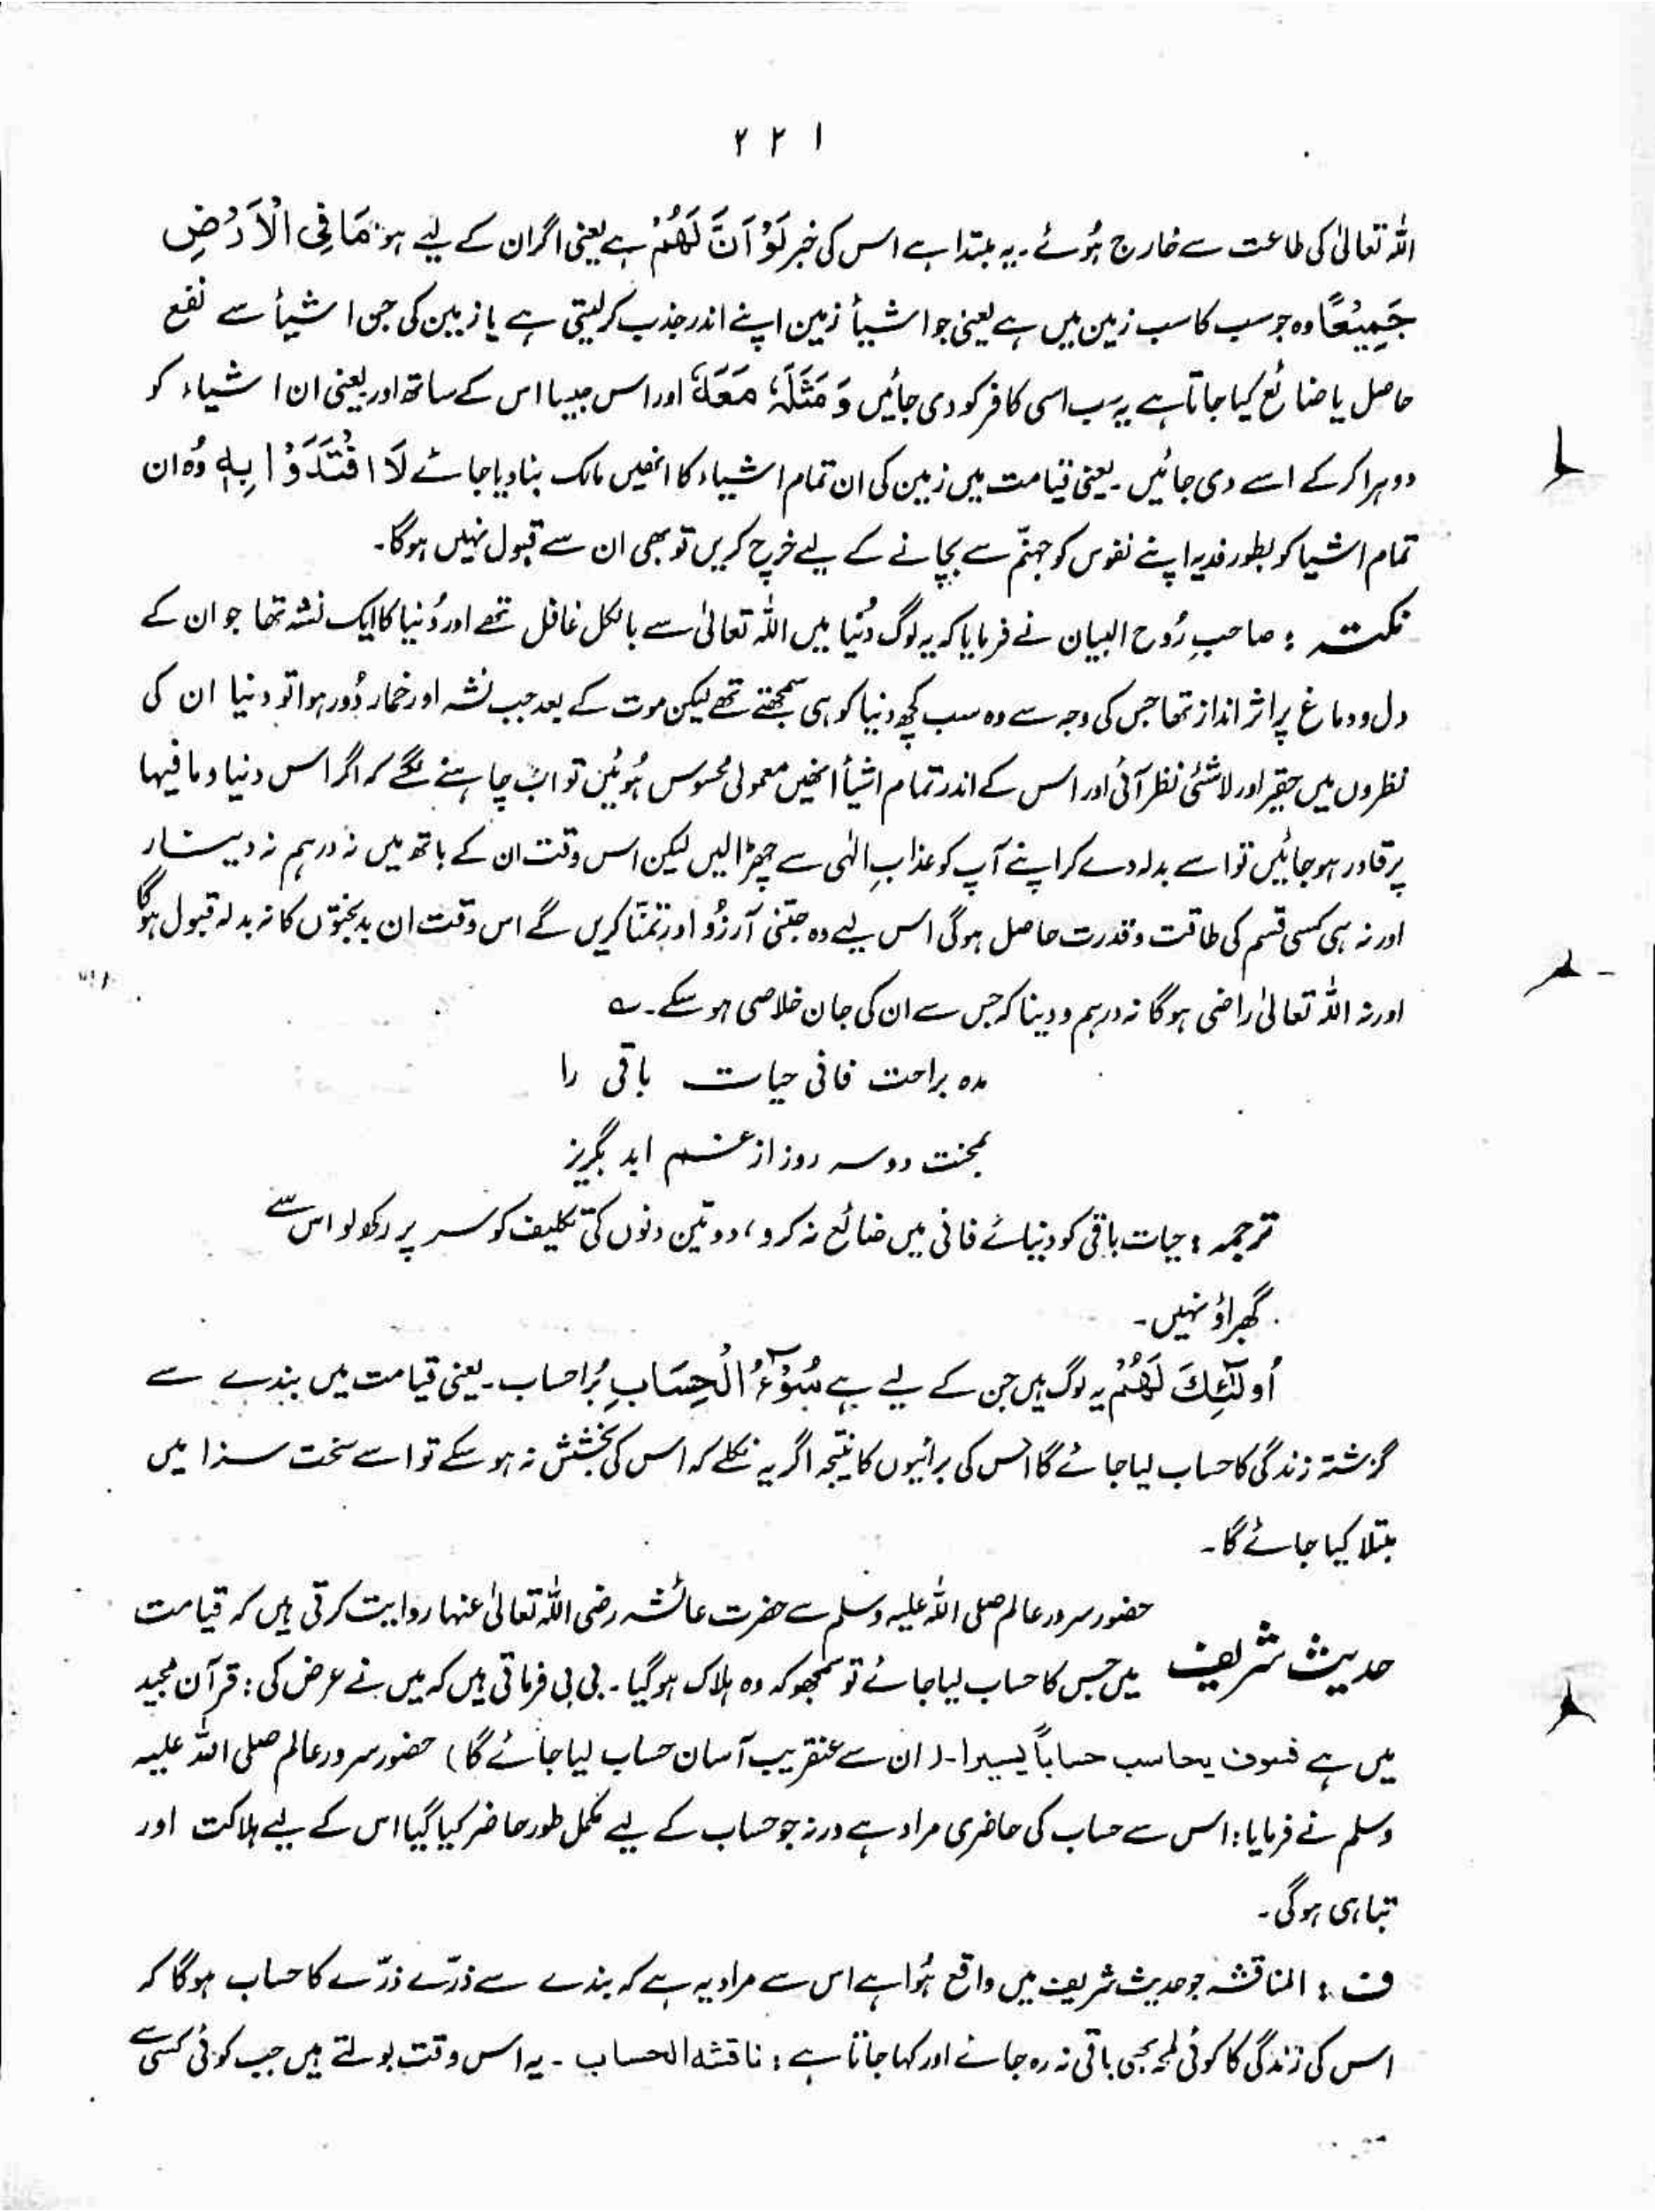 ۲۲۱
اللہ تعالیٰ کی طاعت سے خارج ہُوئے۔ یہ مبتدا ہے اس کی خبر لَوْ اَنَّ لَهُمْ ہے یعنی اگر ان کے لیے ہو مَا فِی الْاَرْضِ
جَمِیْعًا وہ جو سب کا سب زمین میں ہے یعنی جو اشیأ زمین اپنے اندر جذب کر لیتی ہے یا زمین کی جن اشیأ سے نفع
حاصل یا ضائع کیا جاتا ہے یہ سب اسی کافر کو دی جائیں وَ مَثَلَہٗ مَعَہٗ اور اس جیسا اس کے ساتھ اور یعنی ان اشیاء کو
دوہرا کر کے اسے دی جائیں۔ یعنی قیامت میں زمین کی ان تمام اشیاء کا انھیں مالک بنا دیا جائے لَا افْتَدَوْا بِهٖ وُہ ان
تمام اشیا کو بطور فدیہ اپنے نفوس کو جہنّم سے بچانے کے لیے خرچ کریں تو بھی ان سے قبول نہیں ہوگا۔
نکتہ : صاحبِ رُوح البیان نے فرمایا کہ یہ لوگ دُنیا میں اللہ تعالیٰ سے بالکل غافل تھے اور دُنیا کا ایک نشہ تھا جو ان کے
دل و دماغ پر اثر انداز تھا جس کی وجہ سے وہ سب کچھ دنیا کو ہی سمجھتے تھے لیکن موت کے بعد جب نشہ اور خمار دُور ہوا تو دنیا ان کی
نظروں میں حقیر اور لاشئی نظر آئی اور اس کے اندر تمام اشیأ انھیں معمولی محسوس ہُوئیں تو اب چاہنے لگے کہ اگر اس دنیا و ما فیہا
پر قادر ہو جائیں تو اسے بدلہ دے کر اپنے آپ کو عذابِ الٰہی سے چھڑا لیں لیکن اس وقت ان کے ہاتھ میں نہ درہم نہ دینار
اور نہ ہی کسی قسم کی طاقت و قدرت حاصل ہوگی اس لیے وہ جتنی آرزُو اور تمنّا کریں گے اس وقت ان بدبختوں کا نہ بدلہ قبول ہوگا
اور نہ اللہ تعالیٰ راضی ہوگا نہ درہم و دینا کہ جس سے ان کی جان خلاصی ہو سکے۔ ؎
مدہ براحت فانی حیات باقی را
بمحنت دو سہ روز از غم ابد بگریز
ترجمہ : حیات باقی کو دنیائے فانی میں ضائع نہ کرو، دو تین دنوں کی تکلیف کو سر پر رکھ لو اس سے
گھبراؤ نہیں۔
اُولٰٓئِكَ لَهُمْ یہ لوگ ہیں جن کے لیے ہے سُوْٓءُ الْحِسَابِ بُرا حساب۔ یعنی قیامت میں بندے سے
گزشتہ زندگی کا حساب لیا جائے گا اس کی برائیوں کا نتیجہ اگر یہ نکلے کہ اس کی بخشش نہ ہو سکے تو اسے سخت سزا میں
مبتلا کیا جائے گا۔
حضور سرور عالم صلی اللہ علیہ وسلم سے حضرت عائشہ رضی اللہ تعالیٰ عنہا روایت کرتی ہیں کہ قیامت
حدیث شریف میں جس کا حساب لیا جائے تو سمجھو کہ وہ ہلاک ہوگیا۔ بی بی فرماتی ہیں کہ میں نے عرض کی : قرآن مجید
میں ہے فسوف یحاسب حساباً یسیرا۔ (ان سے عنقریب آسان حساب لیا جائے گا) حضور سرور عالم صلی اللہ علیہ
وسلم نے فرمایا : اس سے حساب کی حاضری مراد ہے ورنہ جو حساب کے لیے مکمل طور حاضر کیا گیا اس کے لیے ہلاکت اور
تباہی ہوگی۔
ف : المناقشہ جو حدیث شریف میں واقع ہُوا ہے اس سے مراد یہ ہے کہ بندے سے ذرّے ذرّے کا حساب ہوگا کہ
اس کی زندگی کا کوئی لمحہ بھی باقی نہ رہ جائے اور کہا جاتا ہے : ناقشہ الحساب۔ یہ اس وقت بولتے ہیں جب کوئی کسی سے